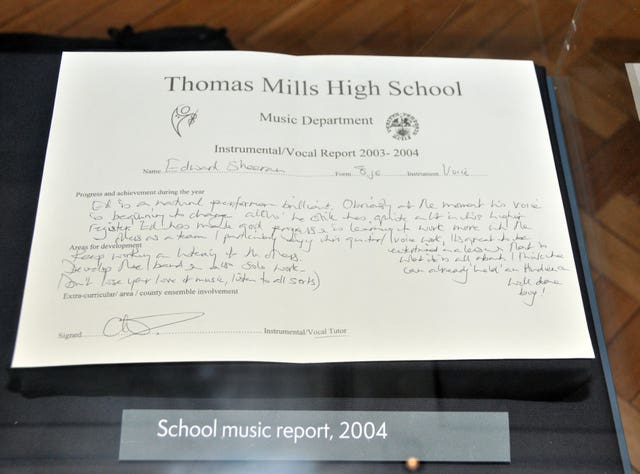 Thomas Mills High School
Music Department
Instrumental/Vocal Report 2003- 2004
Name Edward Sheeran Form Instrument Voice
Progress and achievement during the year
Ed is a natural performer brilliant. Obviously at the moment his voice
is beginning to change he still has quite a bit in his higher
register Ed has made good progress is learning to work more with the
others as a team I particularly enjoy his guitar/Voice work, It's great to be
entertained in a lesson that is
Areas for development
what it's all about. I think he
Keep working on listening to the others.
can already 'hold' an Audience
Develop the band & also solo work.
Well done
(Don't lose your love of music, listen to all sorts)
boy!
Extra-curricular/ area / county ensemble involvement
Signed Instrumental/Vocal Tutor
School music report, 2004